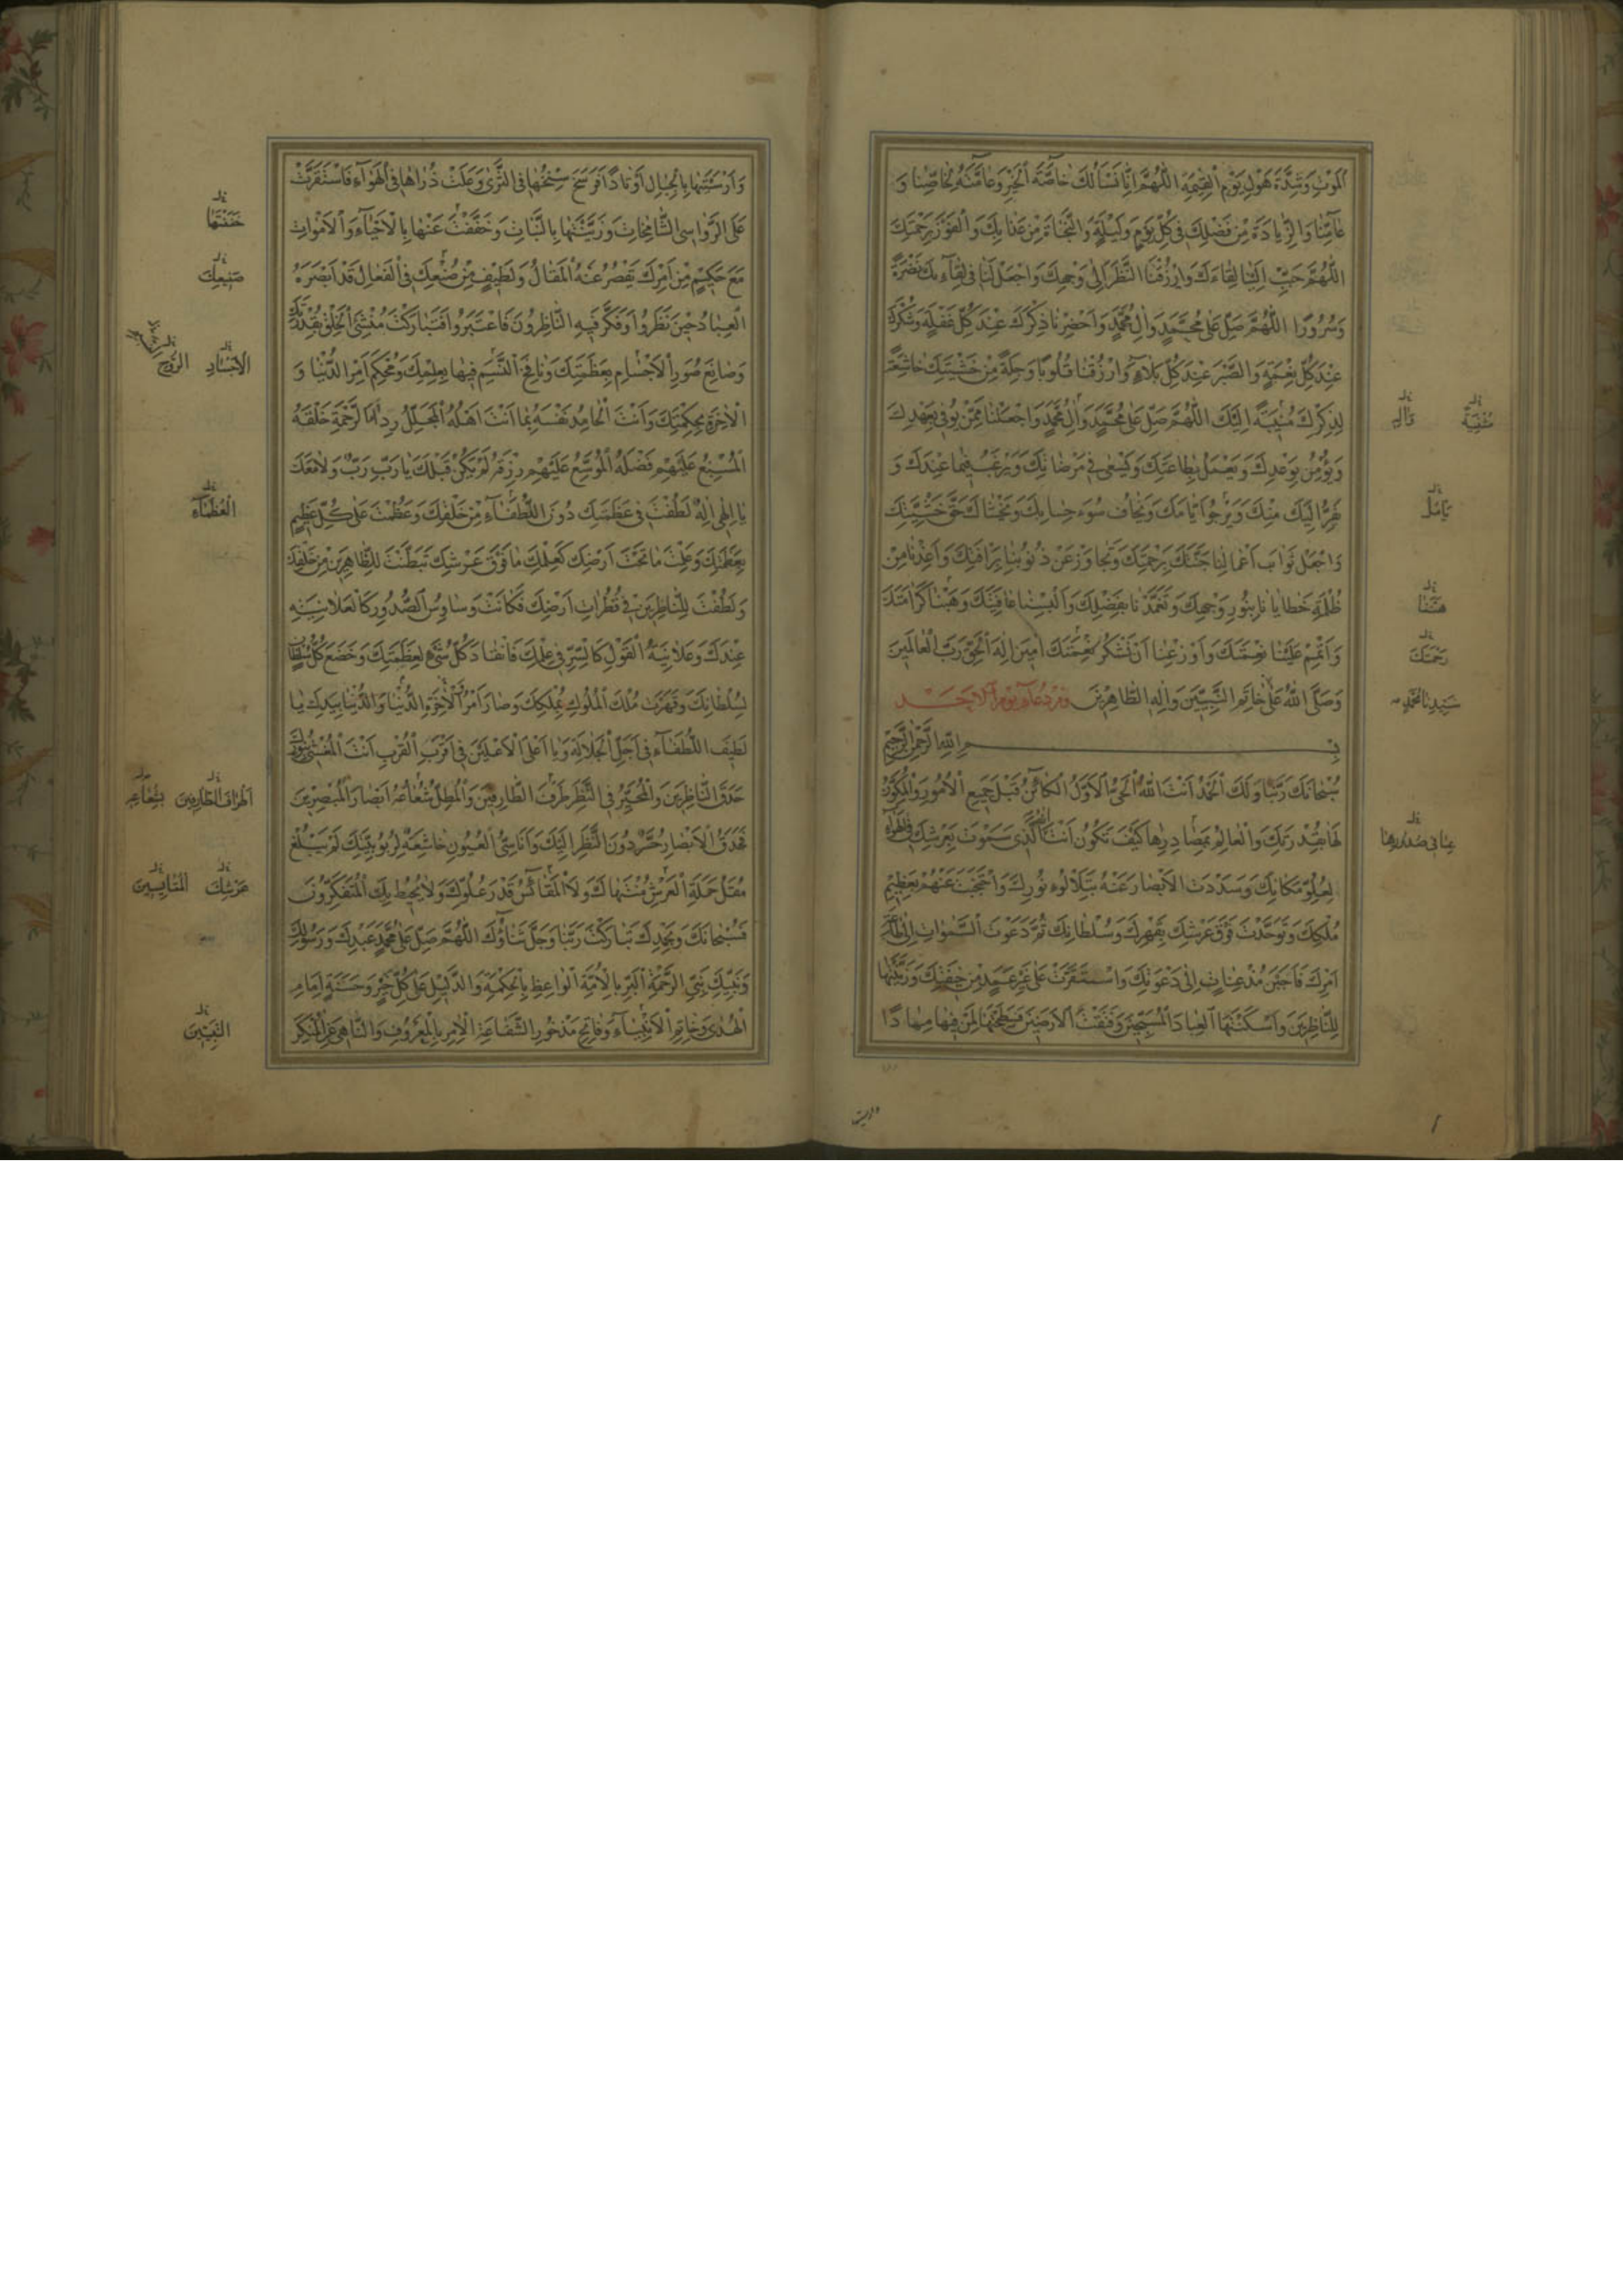 الْمَوْتِ وَشِدَّةَ هَوْلِ يَوْمِ الْقِيٰمَةِ اللّٰهُمَّ اِنَّا نَسْاَلُكَ خَاصَّةَ الْخَيْرِ وَعَامَّتَهُ لِخَاصِّنَا وَ
عَامِّنَا وَالزِّيَادَةَ مِنْ فَضْلِكَ فِي كُلِّ يَوْمٍ وَلَيْلَةٍ وَالنَّجَاةَ مِنْ عَذَابِكَ وَالْفَوْزَ بِرَحْمَتِكَ
اللّٰهُمَّ حَبِّبْ اِلَيْنَا لِقَاءَكَ وَارْزُقْنَا النَّظَرَ اِلٰى وَجْهِكَ وَاجْعَلْ لَنَا فِي لِقَاءِكَ نَضْرَةً
وَسُرُورًا اللّٰهُمَّ صَلِّ عَلٰى مُحَمَّدٍ وَاٰلِ مُحَمَّدٍ وَاَحْضِرْنَا ذِكْرَكَ عِنْدَ كُلِّ غَفْلَةٍ وَشُكْرَكَ
عِنْدَ كُلِّ نِعْمَةٍ وَالصَّبْرَ عِنْدَ كُلِّ بَلَاءٍ وَارْزُقْنَا قُلُوبًا وَجِلَةً مِنْ خَشْيَتِكَ خَاشِعَةً
لِذِكْرِكَ مُنِيبَةً اِلَيْكَ اللّٰهُمَّ صَلِّ عَلٰى مُحَمَّدٍ وَاٰلِ مُحَمَّدٍ وَاجْعَلْنَا مِمَّنْ يُوفِي بِعَهْدِكَ
وَيُؤْمِنُ بِوَعْدِكَ وَيَعْمَلُ بِطَاعَتِكَ وَيَسْعٰى فِي مَرْضَاتِكَ وَيَرْغَبُ فِيمَا عِنْدَكَ وَ
يَفِرُّ اِلَيْكَ مِنْكَ وَيَرْجُوا اَيَّامَكَ وَيَخَافُ سُوءَ حِسَابِكَ وَيَخْشَاكَ حَقَّ خَشْيَتِكَ
وَاجْعَلْ ثَوَابَ اَعْمَالِنَا جَنَّتَكَ بِرَحْمَتِكَ وَتَجَاوَزْ عَنْ ذُنُوبِنَا بِرَاْفَتِكَ وَاَعِذْنَا مِنْ
ظُلْمَةِ خَطَايَانَا بِنُورِ وَجْهِكَ وَتَغَمَّدْنَا بِفَضْلِكَ وَاَلْبِسْنَا عَافِيَتَكَ وَهَبْنَا كَرَامَتَكَ
وَاَتْمِمْ عَلَيْنَا نِعْمَتَكَ وَاَوْزِعْنَا اَنْ نَشْكُرَ نِعْمَتَكَ اٰمِينَ اِلٰهَ الْحَقِّ رَبَّ الْعَالَمِينَ
وَصَلَّى اللّٰهُ عَلٰى خَاتَمِ النَّبِيِّينَ وَاٰلِهِ الطَّاهِرِينَ دُعَاء يَوْم الْاَحَد
بِسْمِ اللّٰهِ الرَّحْمٰنِ الرَّحِيمِ
سُبْحَانَكَ رَبَّنَا وَلَكَ الْحَمْدُ اَنْتَ اللّٰهُ الْحَيُّ الْاَوَّلُ الْكَائِنُ قَبْلَ جَمِيعِ الْاُمُورِ وَالْمُكَوِّنُ
لَهَا بِقُدْرَتِكَ وَالْعَالِمُ بِمَصَادِرِهَا كَيْفَ تَكُونُ اَنْتَ الَّذِي سَمَوْتَ بِعَرْشِكَ فِي الْهَوَاءِ
لِعُلُوِّ مَكَانِكَ وَسَدَدْتَ الْاَبْصَارَ عَنْهُ بِتَلَاْلُوءِ نُورِكَ وَاحْتَجَبْتَ عَنْهُمْ بِعَظِيمِ
مُلْكِكَ وَتَوَحَّدْتَ فَوْقَ عَرْشِكَ بِقَهْرِكَ وَسُلْطَانِكَ ثُمَّ دَعَوْتَ السَّمٰوَاتِ اِلٰى طَاعَةِ
اَمْرِكَ فَاَجَبْنَ مُذْعِنَاتٍ اِلٰى دَعْوَتِكَ وَاسْتَقَرَّتْ عَلٰى غَيْرِ عَمَدٍ مِنْ خِيفَتِكَ وَزَيَّنْتَهَا
لِلنَّاظِرِينَ وَاَسْكَنْتَهَا الْعِبَادَ الْمُسَبِّحِينَ وَفَتَقْتَ الْاَرَضِينَ فَسَطَحْتَهَا لِمَنْ فِيهَا مِهَادًا
مُنِيبَةً
يَاْمَلُ
هَنِّئْنَا
رَحْمَتَكَ
سَيِّدِنَا مُحَمَّدٍ
وَاَرْسَيْتَهَا بِالْجِبَالِ اَوْتَادًا فَرَسَخَ سِنْخُهَا فِي الثَّرٰى وَعَلَتْ ذُرَاهَا فِي الْهَوَاءِ فَاسْتَقَرَّتْ
عَلَى الرَّوَاسِي الشَّامِخَاتِ وَزَيَّنْتَهَا بِالنَّبَاتِ وَخَفَّفْتَ عَنْهَا بِالْاَحْيَاءِ وَالْاَمْوَاتِ
مَعَ حَكِيمٍ مِنْ اَمْرِكَ يَقْصُرُ عَنْهُ الْمَقَالُ وَلَطِيفٍ مِنْ صُنْعِكَ فِي الْفِعَالِ قَدْ اَبْصَرَهُ
الْعِبَادُ حِينَ نَظَرُوا وَفَكَّرَ فِيهِ النَّاظِرُونَ فَاعْتَبَرُوا فَتَبَارَكْتَ مُنْشِئَ الْخَلْقِ بِقُدْرَتِكَ
وَصَانِعَ صُوَرِ الْاَجْسَامِ بِعَظَمَتِكَ وَنَافِخَ النَّسَمِ فِيهَا بِعِلْمِكَ وَمُحْكِمَ اَمْرِ الدُّنْيَا وَ
الْاٰخِرَةِ بِحِكْمَتِكَ وَاَنْتَ الْحَامِدُ نَفْسَهُ بِمَا اَنْتَ اَهْلُهُ الْمُجَلِّلُ رِدَاءَ الرَّحْمَةِ خَلْقَهُ
الْمُسْبِغُ عَلَيْهِمْ فَضْلَهُ الْمُوَسِّعُ عَلَيْهِمْ رِزْقَهُ لَمْ يَكُنْ قَبْلَكَ يَا رَبِّ رَبٌّ وَلَا مَعَكَ
يَا اِلٰهِي اِلٰهٌ لَطُفْتَ فِي عَظَمَتِكَ دُونَ اللُّطَفَاءِ مِنْ خَلْقِكَ وَعَظُمْتَ عَلٰى كُلِّ عَظِيمٍ
بِعَظَمَتِكَ وَعَلِمْتَ مَا تَحْتَ اَرْضِكَ كَعِلْمِكَ مَا فَوْقَ عَرْشِكَ تَبَطَّنْتَ لِلظَّاهِرِينَ مِنْ خَلْقِكَ
وَلَطُفْتَ لِلنَّاظِرِينَ فِي قُطُرَاتِ اَرْضِكَ فَكَانَتْ وَسَاوِسُ الصُّدُورِ كَالْعَلَانِيَةِ
عِنْدَكَ وَعَلَانِيَةُ الْقَوْلِ كَالسِّرِّ فِي عِلْمِكَ فَانْقَادَ كُلُّ شَيْءٍ لِعَظَمَتِكَ وَخَضَعَ كُلُّ سُلْطَانٍ
لِسُلْطَانِكَ وَقَهَرْتَ مُلْكَ الْمُلُوكِ بِمُلْكِكَ وَصَارَ اَمْرُ الْاٰخِرَةِ وَالدُّنْيَا بِيَدِكَ يَا
لَطِيفَ اللُّطَفَاءِ فِي اَجَلِّ الْجَلَالَةِ وَيَا اَعْلَى الْاَعْلَيْنَ فِي اَقْرَبِ الْقُرْبِ اَنْتَ الْمُغَشِّي بِنُورِكَ
حَدَقَ النَّاظِرِينَ وَالْمُحَيِّرُ فِي النَّظَرِ طَرْفَ الطَّارِفِينَ وَالْمُظِلُّ شُعَاعُهُ اَبْصَارَ الْمُبْصِرِينَ
فَحَدَقُ الْاَبْصَارِ حُسَّرٌ دُونَ النَّظَرِ اِلَيْكَ وَاَنَاسِيُّ الْعُيُونِ خَاشِعَةٌ لِرُبُوبِيَّتِكَ لَمْ يَبْلُغْ
مُقَلُ حَمَلَةِ الْعَرْشِ مُنْتَهَاكَ وَلَا الْمَقَائِسُ قَدْرَ عُلُوِّكَ وَلَا يُحِيطُ بِكَ الْمُتَفَكِّرُونَ
فَسُبْحَانَكَ وَبِحَمْدِكَ تَبَارَكْتَ رَبَّنَا وَجَلَّ ثَنَاؤُكَ اللّٰهُمَّ صَلِّ عَلٰى مُحَمَّدٍ عَبْدِكَ وَرَسُولِكَ
وَنَبِيِّكَ نَبِيِّ الرَّحْمَةِ الْبَرِّ بِالْاُمَّةِ الْوَاعِظِ بِالْحِكْمَةِ وَالدَّلِيلِ عَلٰى كُلِّ خَيْرٍ وَحَسَنَةٍ اِمَامِ
الْهُدٰى وَخَاتَمِ الْاَنْبِيَاءِ وَفَاتِحِ مَذْخُورِ الشَّفَاعَةِ الْاٰمِرِ بِالْمَعْرُوفِ وَالنَّاهِي عَنِ الْمُنْكَرِ
صَنِيعِكَ
الْاَجْسَادِ الرُّوحِ
الْعُظَمَاءِ
عَرْشِكَ الْمَقَايِيسُ
النَّبِيِّينَ